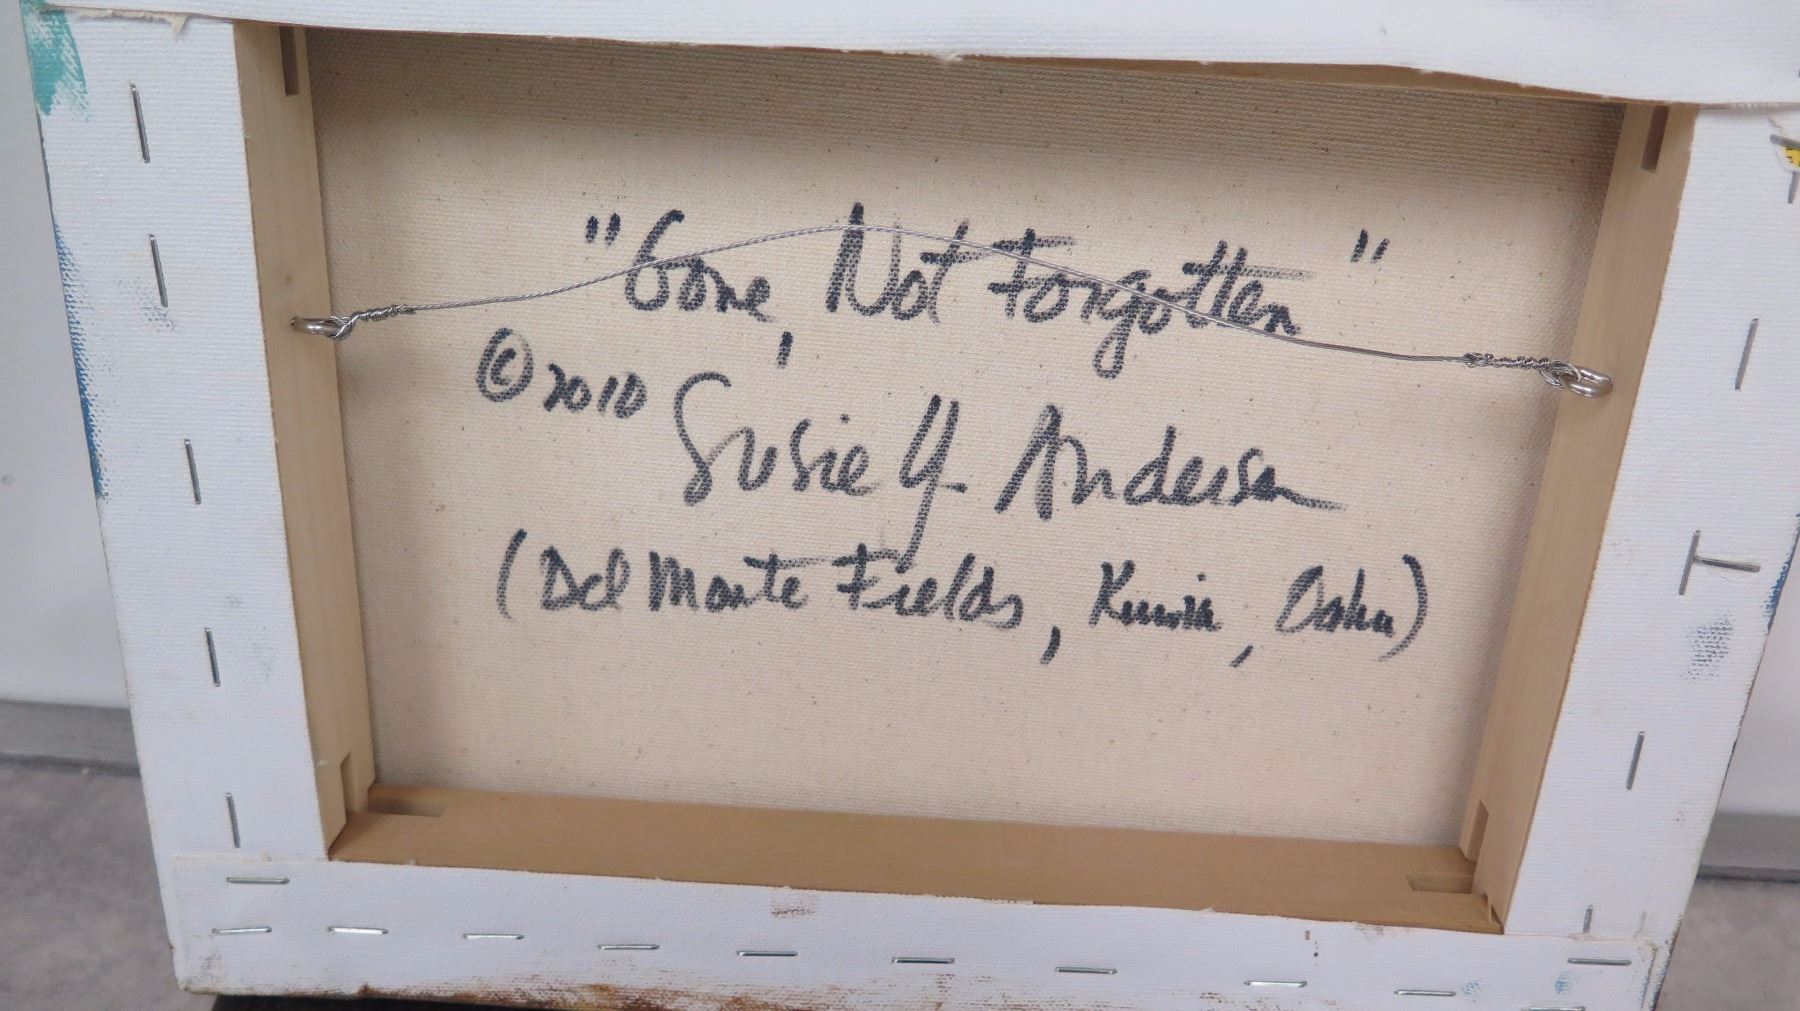 "Gone, Not Forgotten"
© 2010 Susie Y. Anderson
(Del Monte Fields, Kunia, Oahu)